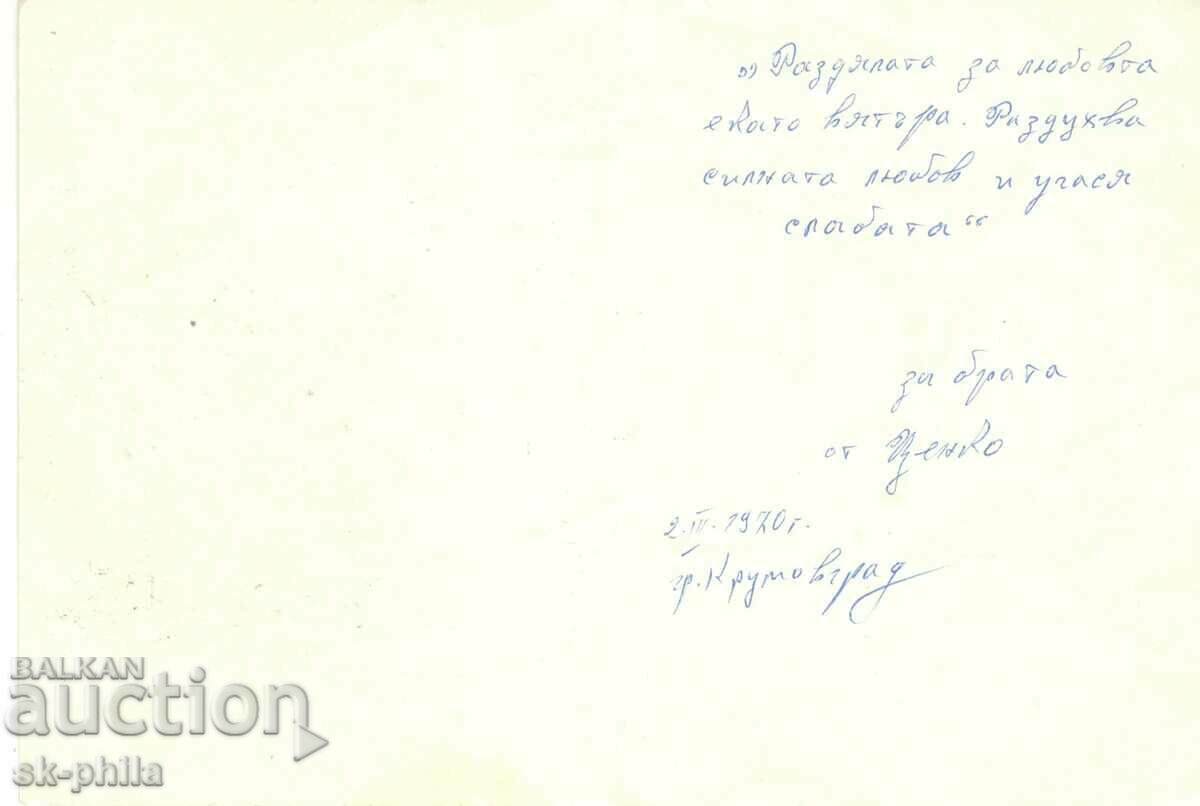 „Раздялата за любовта
е като вятъра. Раздухва
силната любов и угася
слабата“
за брата
от Ценко
2.III.1970г.
гр. Крумовград
BALKAN
auction
sk-phila